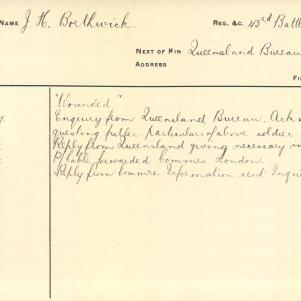 NAME J. H. Borthwick. REG. &C. 43rd Batt
NEXT OF KIN Queensland Bureau
ADDRESS
FI
"Wounded"
Enquiry from Queensland Bureau. Ackn
questing fuller particulars of above soldier
Reply from Queensland giving necessary in
P/table forwarded Commrs London.
Reply from Commrs. Information sent Inqui